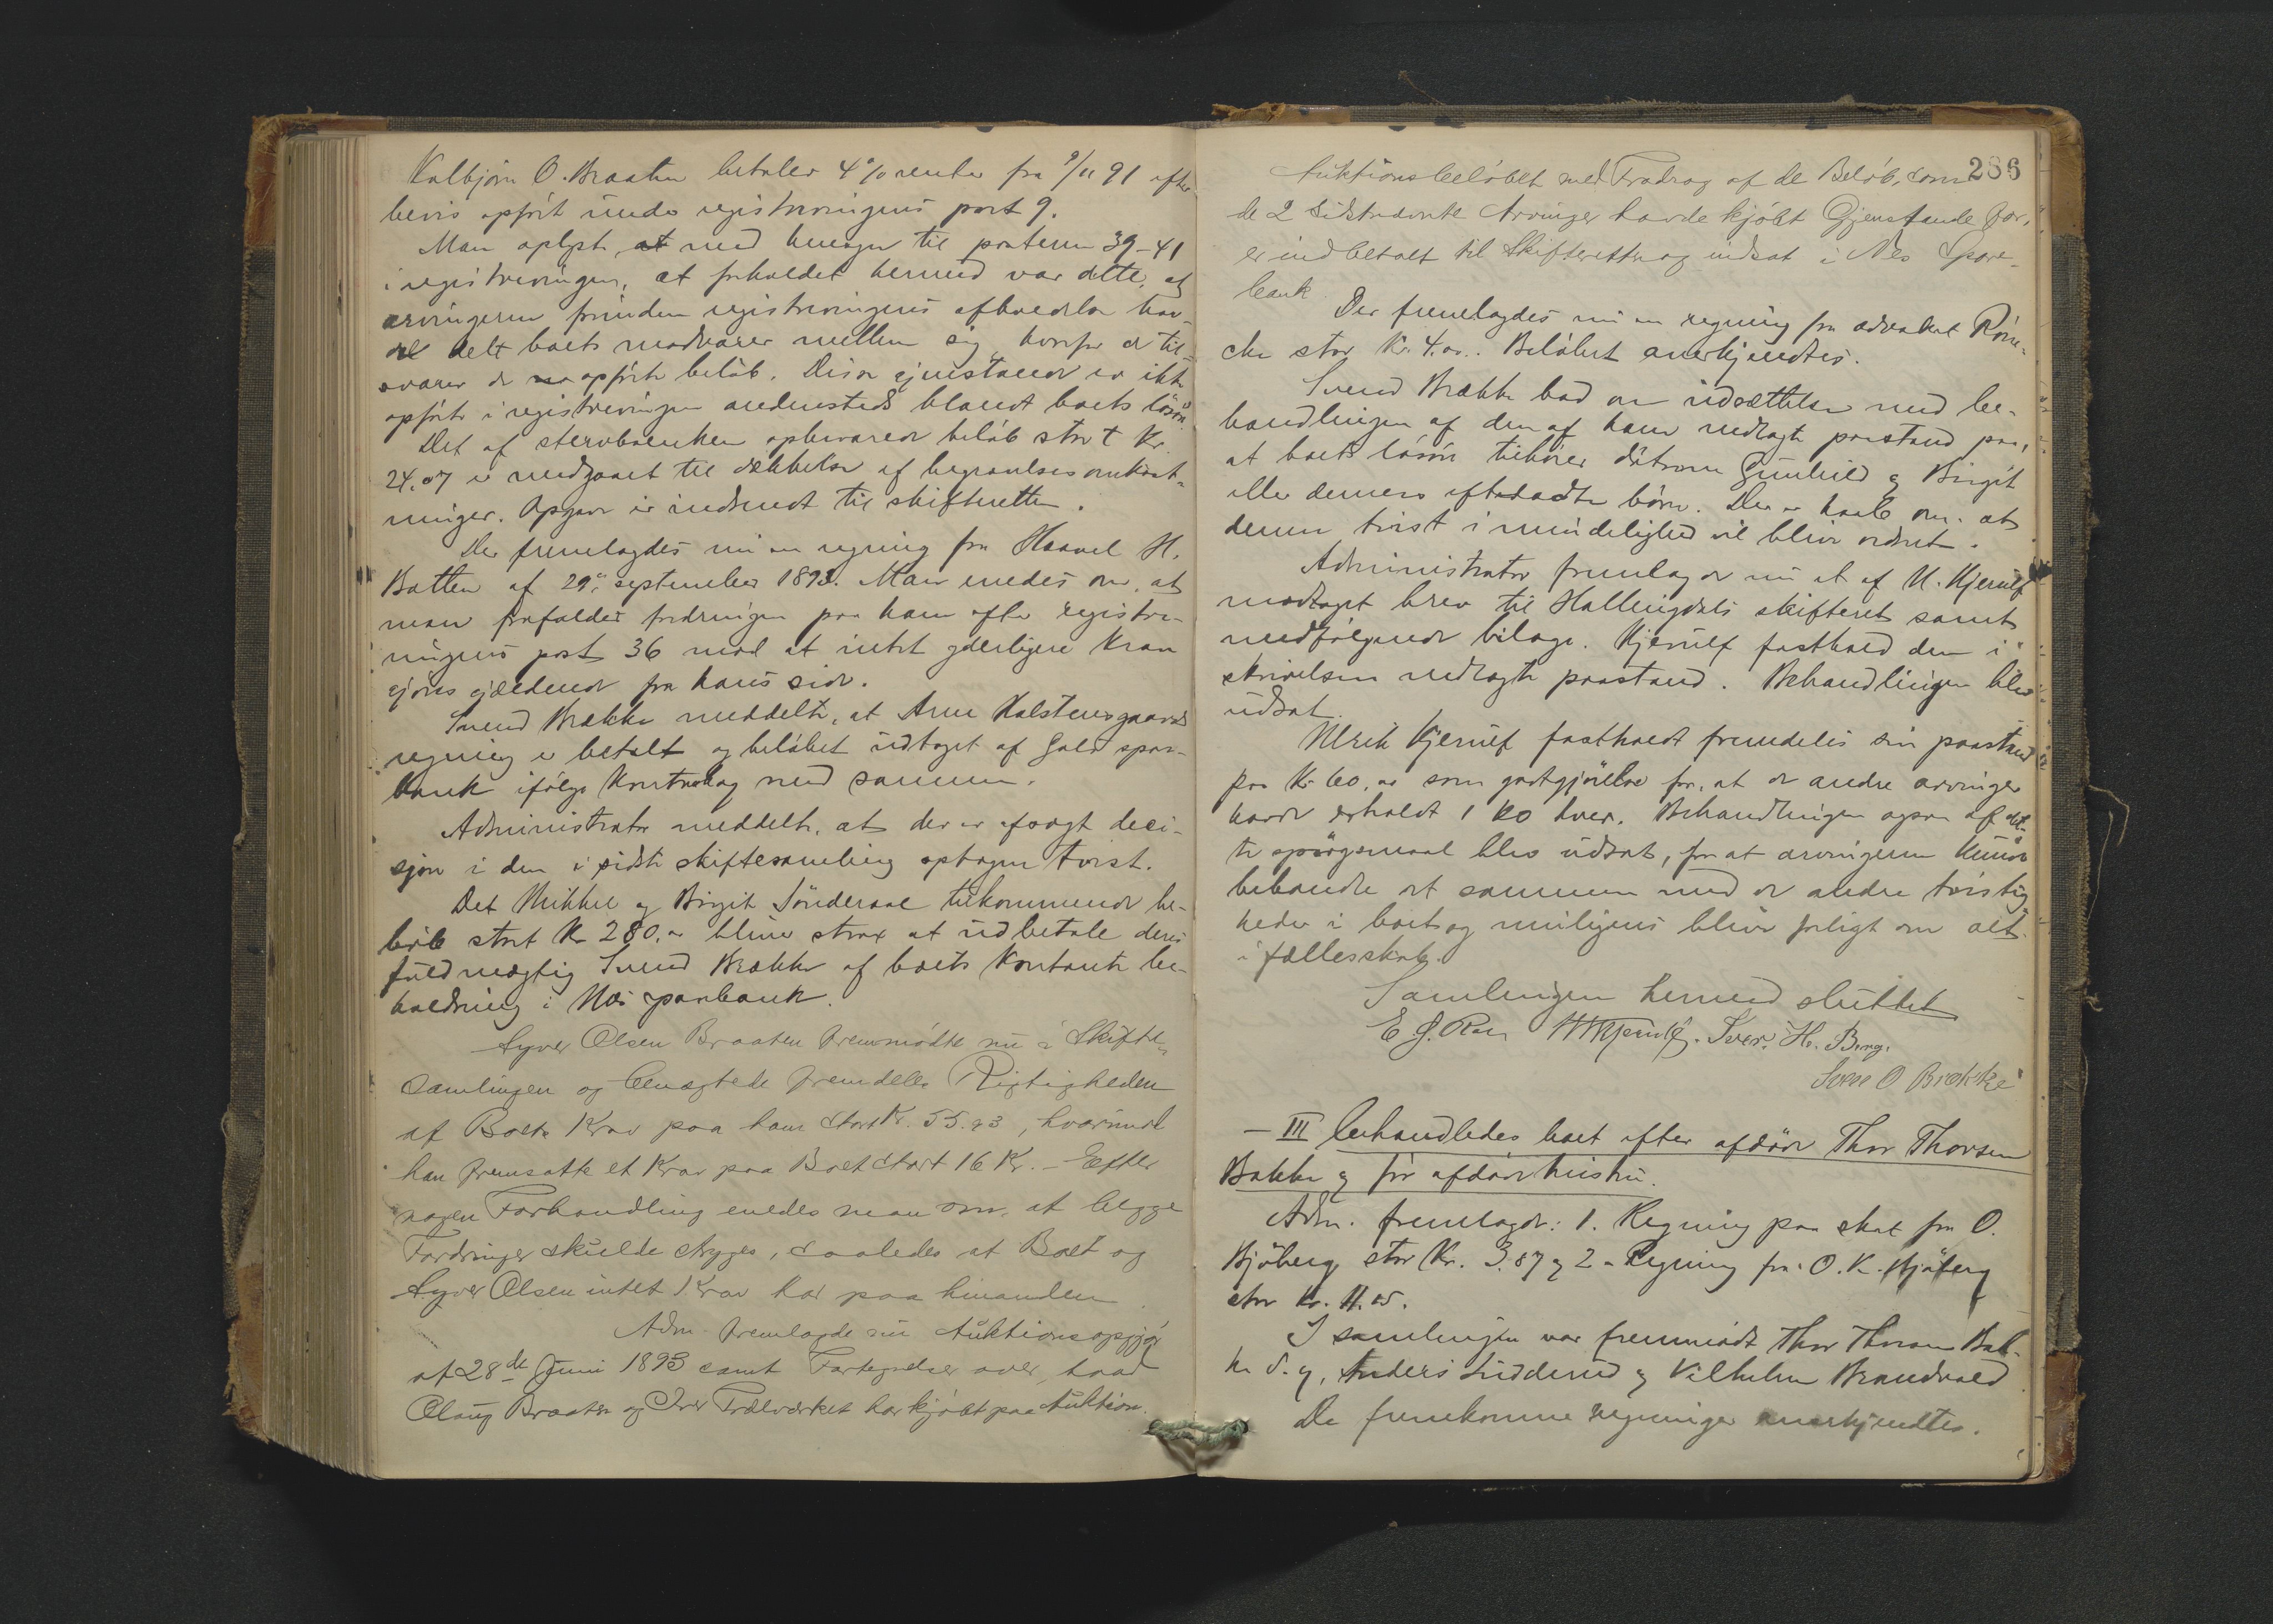 Kolbjørn O. Braaten betaler 4 % renter fra 9/11 91 efter
bevis opført under registreringens post 9.
Man oplyste, at med hensyn til posterne 39-41
i registreringen, at forholdet hermed var dette, at
arvingerne forinden registreringens afholdelse hav-
de delt boets madvarer mellem sig hvorfor de til-
svarer de opførte beløb. Disse gjenstande er ikke
opførte i registreringen andensteds blandt boets løsøre.
Det af sterbboenken opbevarede beløb stort Kr.
24.07 er medgaaet til dækkelse af begravelsesomkost-
ninger. Opgave er indsendt til skifteretten.
Der fremlagdes nu en regning fra Haavel H.
Batten af 29de september 1893. Man enedes om, at
man frafalder fordringen paa ham efter registre-
ringens post 36 mod at intet yderligere krav
gjøres gjældende fra hans side.
Svend Brække meddelte, at Arne Halstensgaards
regning er betalt og beløbet udtaget af Gols spare-
bank ifølge kontrabog med samme.
Administrator meddelte, at der er afsagt deci-
sjon i den i sidste skiftesamling optagne tvist.
Det Mikkel og Birgit Sønderaal tilkommende be-
løb stort Kr 280.00 bliver strax at udbetale deres
fuldmægtig Svend Brække af boets kontante be-
holdning i Næs sparebank.
Syver Olsen Braaten fremmødte nu i Skifte-
samlingen og benægtede fremdeles Rigtigheden
af Boets Krav paa ham stort Kr. 55.93, hvorimod
han fremsatte et Krav paa Boet stort 16 Kr. – Efter
nogen Forhandling enedes man om, at begge
Fordringer skulde stryges, saaledes at Boet og
Syver Olsen intet Krav har paa hinanden.
Adm. fremlagde nu Auktionsopgjør
af 28de Juni 1893 samt Fortegnelse over, hvad
Olaug Braaten og Iver Trælværket har kjøbt paa Auktion.
286
Auktionsbeløbet med Fradrag af de Beløb, som
de 2 sidstnævnte Arvinger havde kjøbt Gjenstande for,
er indbetalt til Skifteretten og indsat i Nes Spare-
bank.
Der fremlagdes nu en regning fra advokat Röme-
cke stor Kr. 4.00. Beløbet anerkjendtes.
Svend Brække bad om udsættelse med be-
handlingen af den af ham nedlagte paastand paa,
at boets løsøre tilhører døtrene Gunhild og Birgit
eller dennes efterladte børn. Der er haab om, at
denne tvist i mindelighed vil blive ordnet.
Administrator fremlagde nu et af U. Kjerulf
modtaget brev til Hallingdals skifteret samt
medfølgende bilage. Kjerulf fastholdt den i
skrivelsen nedlagte paastand. Behandlingen blev
udsat.
Ulrik Kjerulf fastholdt fremdeles sin paastand
paa Kr. 60.00 som godtgjørelse for, at de andre arvinger
havde erholdt 1 ko hver. Behandlingen ogsaa af det-
te spørgsmaal blev udsat, for at arvingerne kunde
behandle det sammen med de andre tvistig-
heder i boet og muligens blive forligt om alt
i fællesskab.
Samlingen hermed sluttet
E J. Roll UKjerulf. Sver. H. Berg.
Sven O Brække
– III behandledes boet efter afdøde Thor Thorsen
Bakke og før afdøde hustru.
Adm. fremlagde: 1. Regning paa skat fra O.
Bjøberg stor Kr. 3.87 og 2. Regning fra O. K. Bjøberg
stor Kr. 11.05.
I samlingen var fremmødt Thor Thorsen Bak-
ke d. y., Anders Lidderud og Vilhelm Brandvold
De fremkomne regninger anerkjendtes.